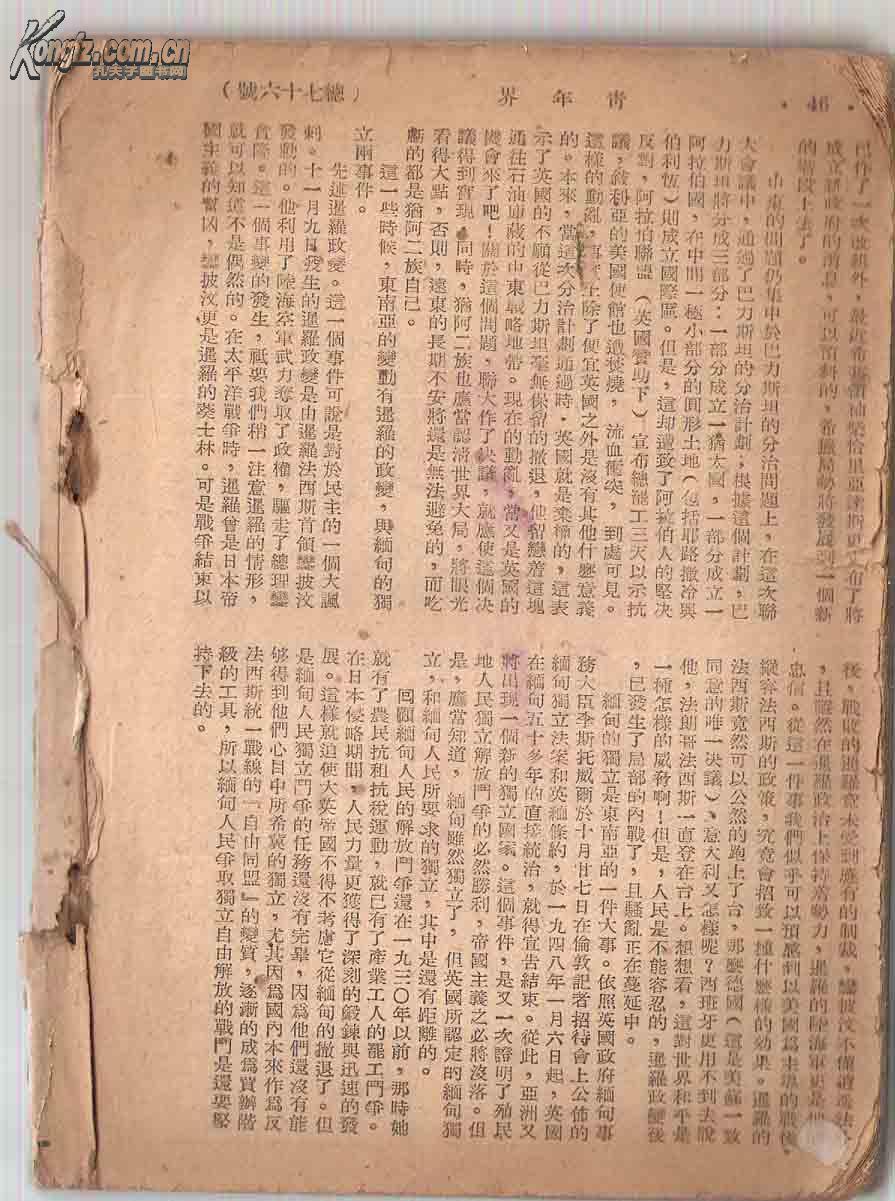 Kongfz.com.cn
孔夫子旧书网
（總七十六號）
青年界
·46·
已作了一次改組外，最近希
成立新政府的消息，可以預料的，希臘局勢將發展到一個新
的階段上去了。
山東的問題仍集中於巴力斯坦的分治問題上，在這次聯
大會議中，通過了巴力斯坦的分治計劃；根據這個計劃，巴
力斯坦將分成三部分：一部分成立一猶太國，一部分成立一
阿拉伯國，在中間一極小部分的圓形土地（包括耶路撒冷與
伯利恆）則成立國際區。但是，這却遭致了阿拉伯人的堅决
反對，阿拉伯聯盟（英國贊助下）宣布總罷工三天以示抗
議，敍利亞的美國使館也遭焚燒，流血衝突，到處可見。
這樣的動亂，事實上除了便宜英國之外是沒有其他什麽意義
的。本來，當這次分治計劃通過時，英國就是棄權的，這表
示了英國的不願從巴力斯坦毫無保留的撤退，他留戀着這塊
通往石油庫藏的中東戰略地帶。現在的動亂，當又是英國的
機會來了吧！關於這個問題，聯大作了決議，就應使這個决
議得到實現，同時，猶阿二族也應當認清世界大局，將眼光
看得大點，否則，遠東的長期不安將還是無法避免的，而吃
虧的都是猶阿二族自己。
這一些時候，東南亞的變動有暹羅的政變，與緬甸的獨
立兩事件。
先述暹羅政變。這一個事件可說是對於民主的一個大諷
刺。十一月九日發生的暹羅政變是由暹羅法西斯首領鑾披汶
發動的。他利用了陸海空軍武力奪取了政權，驅走了總理鑾
貪隆。這一個事變的發生，祇要我們稍一注意暹羅的情形，
就可以知道不是偶然的。在太平洋戰爭時，暹羅曾是日本帝
國主義的幫凶，鑾披汶更是暹羅的葵士林。可是戰爭結束以
後，戰敗的暹羅竟未受到應有的制裁，鑾披汶不僅逍遙法
，且隱然在暹羅政治上保持着勢力，暹羅的陸海軍更是他
忠信。從這一件事我們似乎可以預感到以美國爲主導的戰後
縱容法西斯的政策，究竟會招致一種什麽樣的效果。暹羅的
法西斯竟然可以公然的跑上了台，那麽德國（這是美蘇一致
同意的唯一決議），意大利又怎樣呢？西班牙更用不到去說
他，法朗哥法西斯一直登在台上。想想看，這對世界和平是
一種怎樣的威脅啊！但是，人民是不能容忍的，暹羅政變後
，已發生了局部的內戰了，且騷亂正在蔓延中。
緬甸的獨立是東南亞的一件大事。依照英國政府緬甸事
務大臣李斯托威爾於十月廿七日在倫敦記者招待會上公佈的
緬甸獨立法案和英緬條約，於一九四八年一月六日起，英國
在緬甸五十多年的直接統治，就得宣告結束。從此，亞洲又
將出現一個新的獨立國家。這個事件，是又一次證明了殖民
地人民獨立解放鬥爭的必然勝利，帝國主義之必將沒落。但
是，應當知道，緬甸雖然獨立了，但英國所認定的緬甸獨
立，和緬甸人民所要求的獨立，其中是還有距離的。
回顧緬甸人民的解放鬥爭還在一九三〇年以前，那時她
就有了農民抗租抗稅運動，就已有了產業工人的罷工鬥爭。
在日本侵略期間，人民力量更獲得了深刻的鍛鍊與迅速的發
展。這樣就迫使大英帝國不得不考慮它從緬甸的撤退了。但
是緬甸人民獨立鬥爭的任務還沒有完畢，因爲他們還沒有能
够得到他們心目中所希冀的獨立，尤其因爲國內本來作爲反
法西斯統一戰線的『自由同盟』的變質，逐漸的成爲買辦階
級的工具，所以緬甸人民爭取獨立自由解放的戰鬥是還要堅
持下去的。